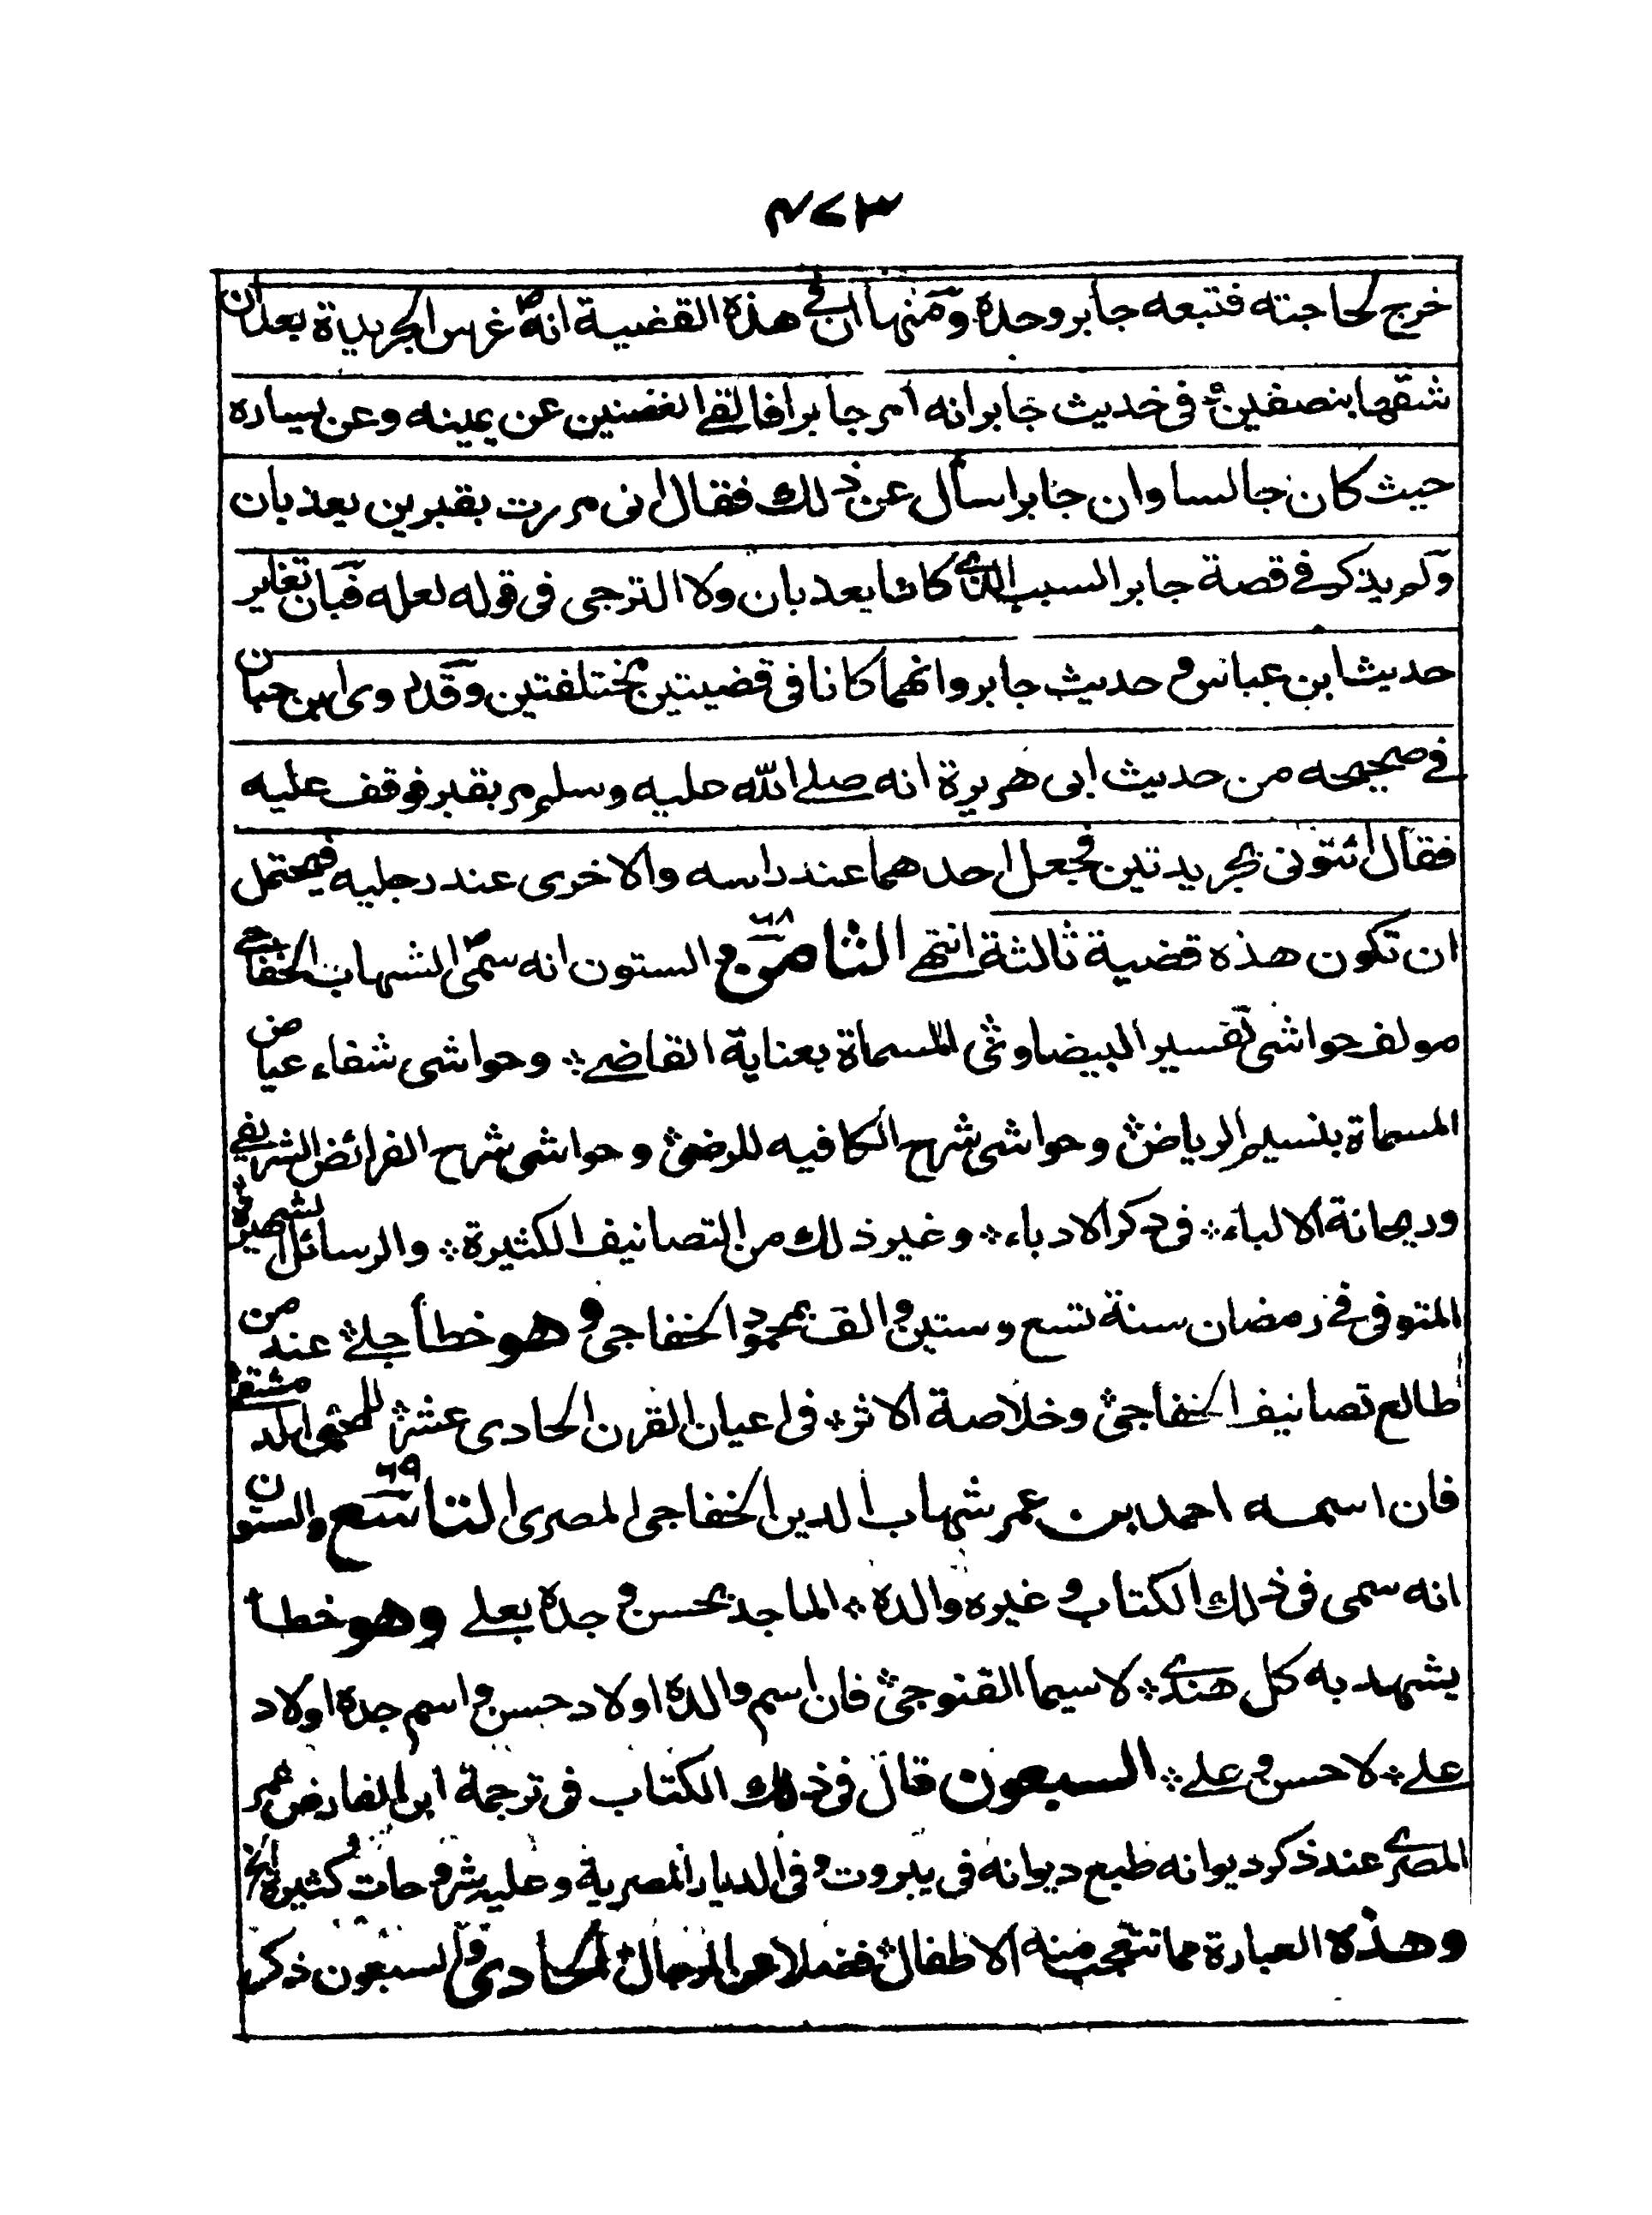 ٤٧٣
خرج لحاجته فتبعه جابر وحده ومنها ان في هذه القضية انه غرس الجريدة بعد ان
شقها بنصفين وفي حديث جابر انه امر جابرا فالقے الغصنين عن يمينه وعن يساره
حيث كان جالسا وان جابرا سأل عن ذلك فقال انى مررت بقبرين يعذبان
ولم يذكر في قصة جابر السبب الذي كانا يعذبان ولا الترجى فى قوله لعله فبان تغاير
حديث ابن عباس و حديث جابر وانهما كانا فى قضيتين مختلفتين وقد روى ابن حبان
في صحيحه من حديث ابى هريرة انه صلے الله عليه وسلم مر بقبر فوقف عليه
فقال ائتونى بجريدتين فجعل احدهما عند راسه والاخرى عند رجليه فيحتمل
ان تكون هذه قضية ثالثة انتهے الثامن و الستون انه سمى الشهاب الخفاجي
مولف حواشى تفسير البيضاوى المسماة بعناية القاضے وحواشى شفاء عياض
المسماة بنسيم الرياض وحواشى شرح الكافيه للرضى وحواشى شرح الفرائض الشريفي
وريحانة الالباء فى ذكر الادباء وغير ذلك من التصانيف الكثيرة والرسائل الشهيرة
المتوفى في رمضان سنة تسع وستين والف بمحمود الخفاجى و هو خطأ جلے عند من
طالع تصانيف الخفاجى وخلاصة الاثر فى اعيان القرن الحادى عشر للمحبى الدمشقي
فان اسمه احمد بن عمر شهاب الدين الخفاجى المصرى التاسع والستون
انه سمى فى ذلك الكتاب و غيره والده الماجد بحسن و جده بعلے وهو خطأ
يشهد به كل هندي لا سيما القنوجى فان اسم والده اولاد حسن و اسم جده اولاد
علے لا حسن و علے السبعون قال فى ذلك الكتاب فى ترجمة ابن الفارض عمر
المصرے عند ذكر ديوانه طبع ديوانه فى بيروت و فى الديار المصرية وعليه شروحات كثيرة الخ
وهذه العبارة مما تتعجب منه الاطفال فضلا عن الرجال الحادى والسبعون ذكر